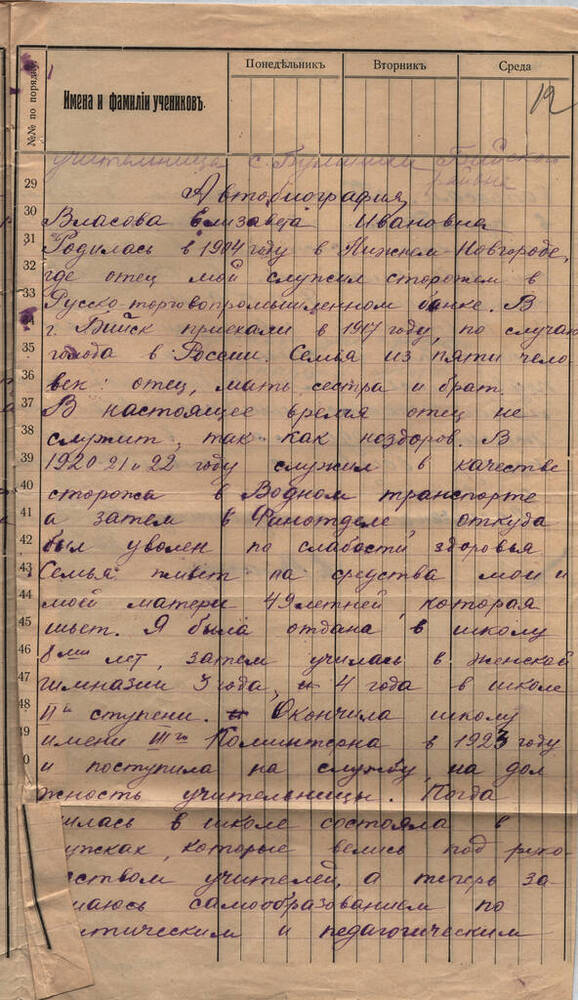 №№ по порядку
Имена и фамиліи учениковъ.
Понедѣльникъ
Вторникъ
Среда
12
учительница с. Булатихи Бийского
района
29
Автобиография
30
Власова Елизавета Ивановна
31
Родилась в 1904 году в Нижнем-Новгороде,
32
где отец мой служил сторожем в
33
Русско-торговопромышленном банке. В
34
г. Бийск приехали в 1917 году, по случаю
35
голода в России. Семья из пяти чело
36
век: отец, мать, сестра и брат.
37
В настоящее время отец не
38
служит, так как нездоров. В
39
1920-21 и 22 году служил в качестве
40
сторожа в Водном транспорте
41
а затем в Финотделе, откуда
42
был уволен по слабости здоровья
43
Семья живет на средства мои и
44
моей матери 49 летней, которая
45
шьет. Я была отдана в школу
46
8ми лет, затем училась в женской
47
гимназии 3 года, 4 года в школе
48
IIй ступени. Окончила школу
49
имени IIIго Коминтерна в 1923 году
и поступила на службу, на дол
жность учительницы. Когда
училась в школе состояла в
кружках, которые велись под руко
водством учителей, а теперь за
нимаюсь самообразованием по
политическим и педагогическим